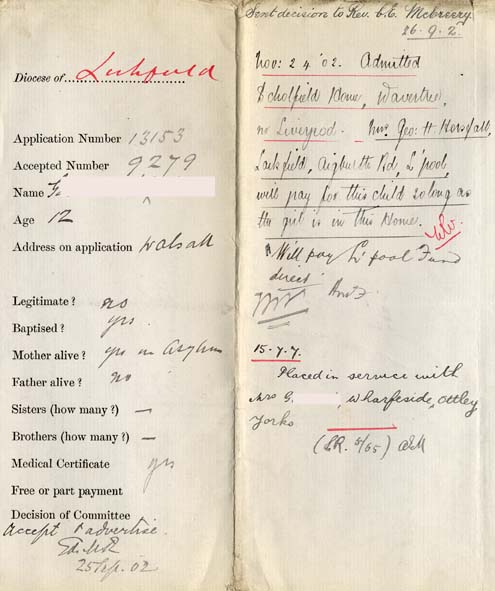 Diocese of Lichfield
Application Number 13153
Accepted Number 9279
Name F
Age 12
Address on application Walsall
Legitimate? no
Baptised? yes
Mother alive? yes in Asylum
Father alive? no
Sisters (how many?) —
Brothers (how many?) —
Medical Certificate yes
Free or part payment
Decision of Committee
Accept & advertise.
25 Sep. 02
Sent decision to Rev. C.E. McCreery.
26.9.2.
Nov: 24 '02. Admitted
Scholfield Home, Wavertree,
nr Liverpool. Mrs Geo: H. Horsfall,
Larkfield, Aigburth Rd, L'pool,
will pay for this child so long as
the girl is in this Home.
Will pay L'pool Fund
direct
15.7.7.
Placed in service with
Mrs G. Wharfeside, Ottley
Yorks